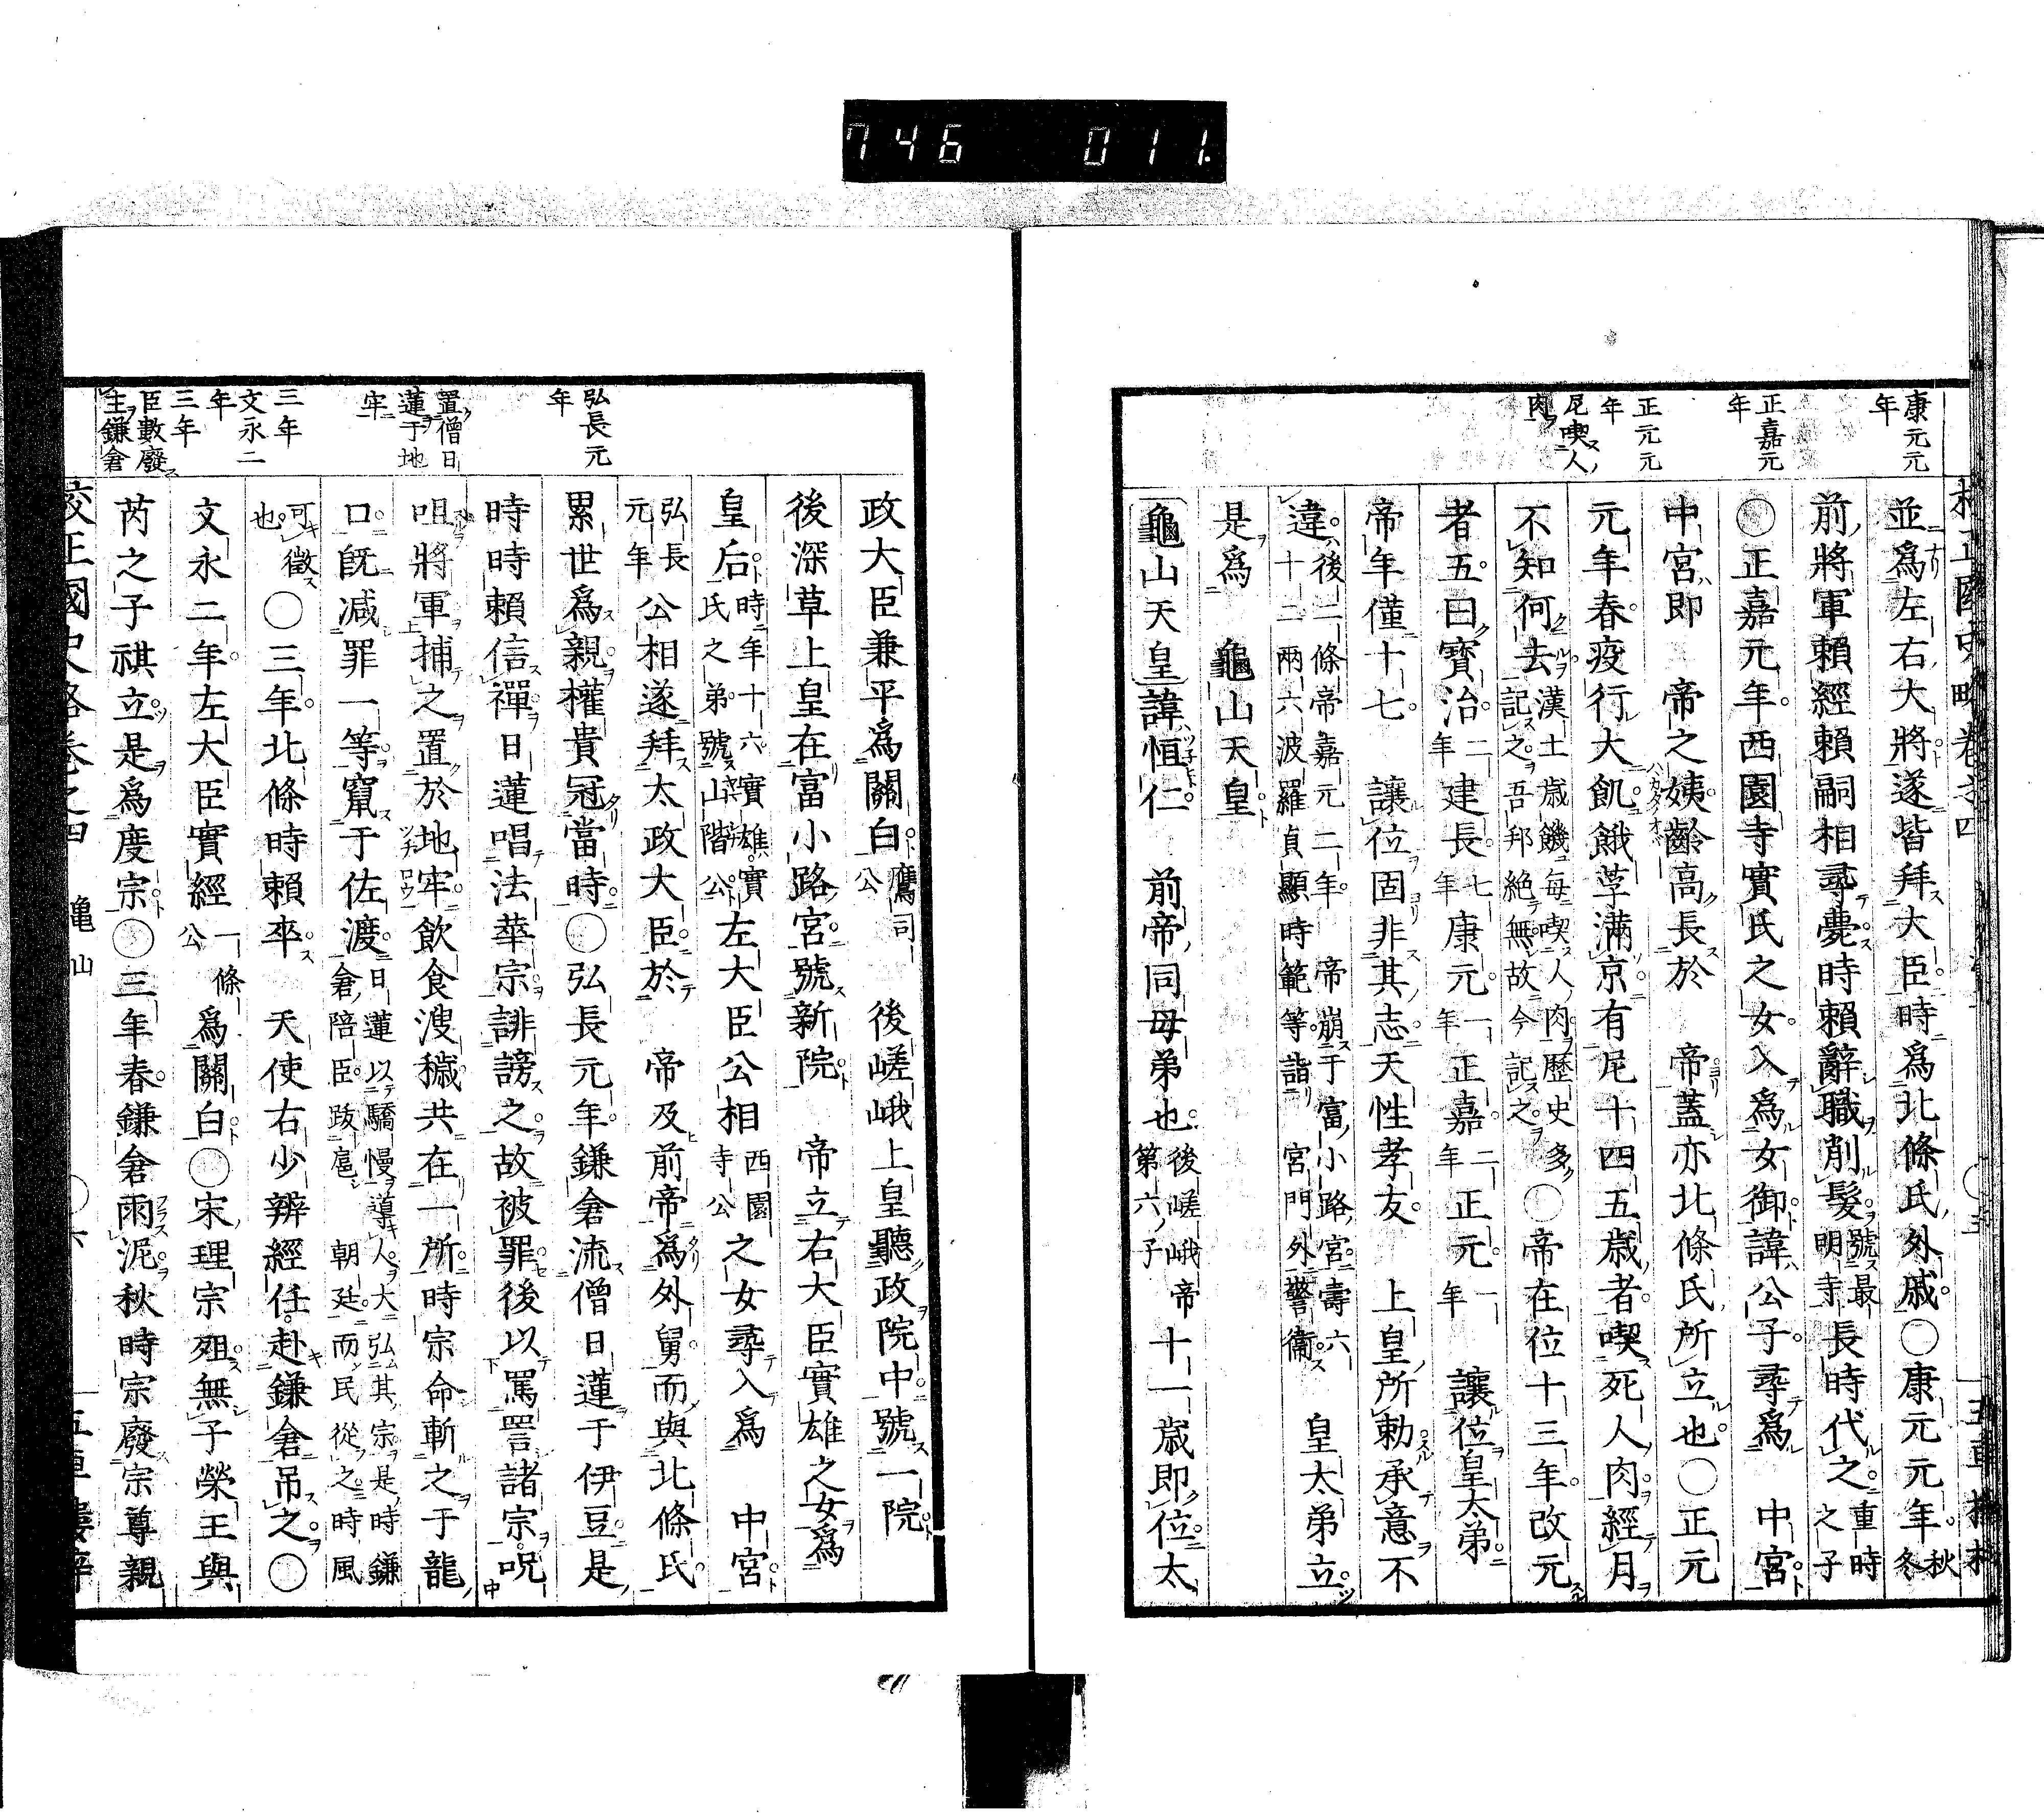 746 011.
康元元年
正嘉元年
正元元年
尼喫人肉
並爲左右大將遂皆拜大臣時爲北條氏外戚〇康元元年秋冬
前將軍賴經賴嗣相尋薨時賴辭職削髮號最明寺長時代之重時之子
〇正嘉元年西園寺實氏之女入爲女御諱公子尋爲　中宮
中宮即　帝之姨齡高長於　帝蓋亦北條氏所立也〇正元
元年春疫行大飢餓莩滿京有尼十四五歲者喫死人肉經月
不知何去漢土歲饑每喫人肉歷史多記之吾邦絕無故今記之〇帝在位十三年改元
者五曰寶治二年建長七年康元一年正嘉二年正元一年　讓位皇太弟
帝年僅十七　讓位固非其志天性孝友　上皇所勅承意不
違後二條帝嘉元二年　帝崩于富小路宮壽六十二兩六波羅貞顯時範等詣　宮門外警衞　皇太弟立
是爲　龜山天皇
龜山天皇諱恒仁　前帝同母弟也後嵯峨帝第六子十一歲即位太
弘長元年
置僧日蓮于地牢
三年
文永二年
三年
臣數廢主鎌倉
政大臣兼平爲關白鷹司公　後嵯峨上皇聽政院中號一院
後深草上皇在富小路宮號新院　帝立右大臣實雄之女爲
皇后時年十六實雄實氏之弟號山階公左大臣公相西園寺公之女尋入爲　中宮
弘長元年公相遂拜太政大臣於　帝及前帝爲外舅而與北條氏
累世爲親權貴冠當時〇弘長元年鎌倉流僧日蓮于伊豆是
時時賴信禪日蓮唱法華宗誹謗之故被罪後以罵詈諸宗呪
咀將軍捕之置於地牢飲食溲穢共在一所時宗命斬之于龍
口旣減罪一等竄于佐渡日蓮以驕慢導人大弘其宗是時鎌倉陪臣跋扈　朝廷而民從之時風
可徵也〇三年北條時賴卒　天使右少辨經任赴鎌倉吊之〇
文永二年左大臣實經一條公爲關白〇宋理宗殂無子榮王與
芮之子祺立是爲度宗〇三年春鎌倉雨泥秋時宗廢宗尊親
校正國史略卷之四　龜山　〇六